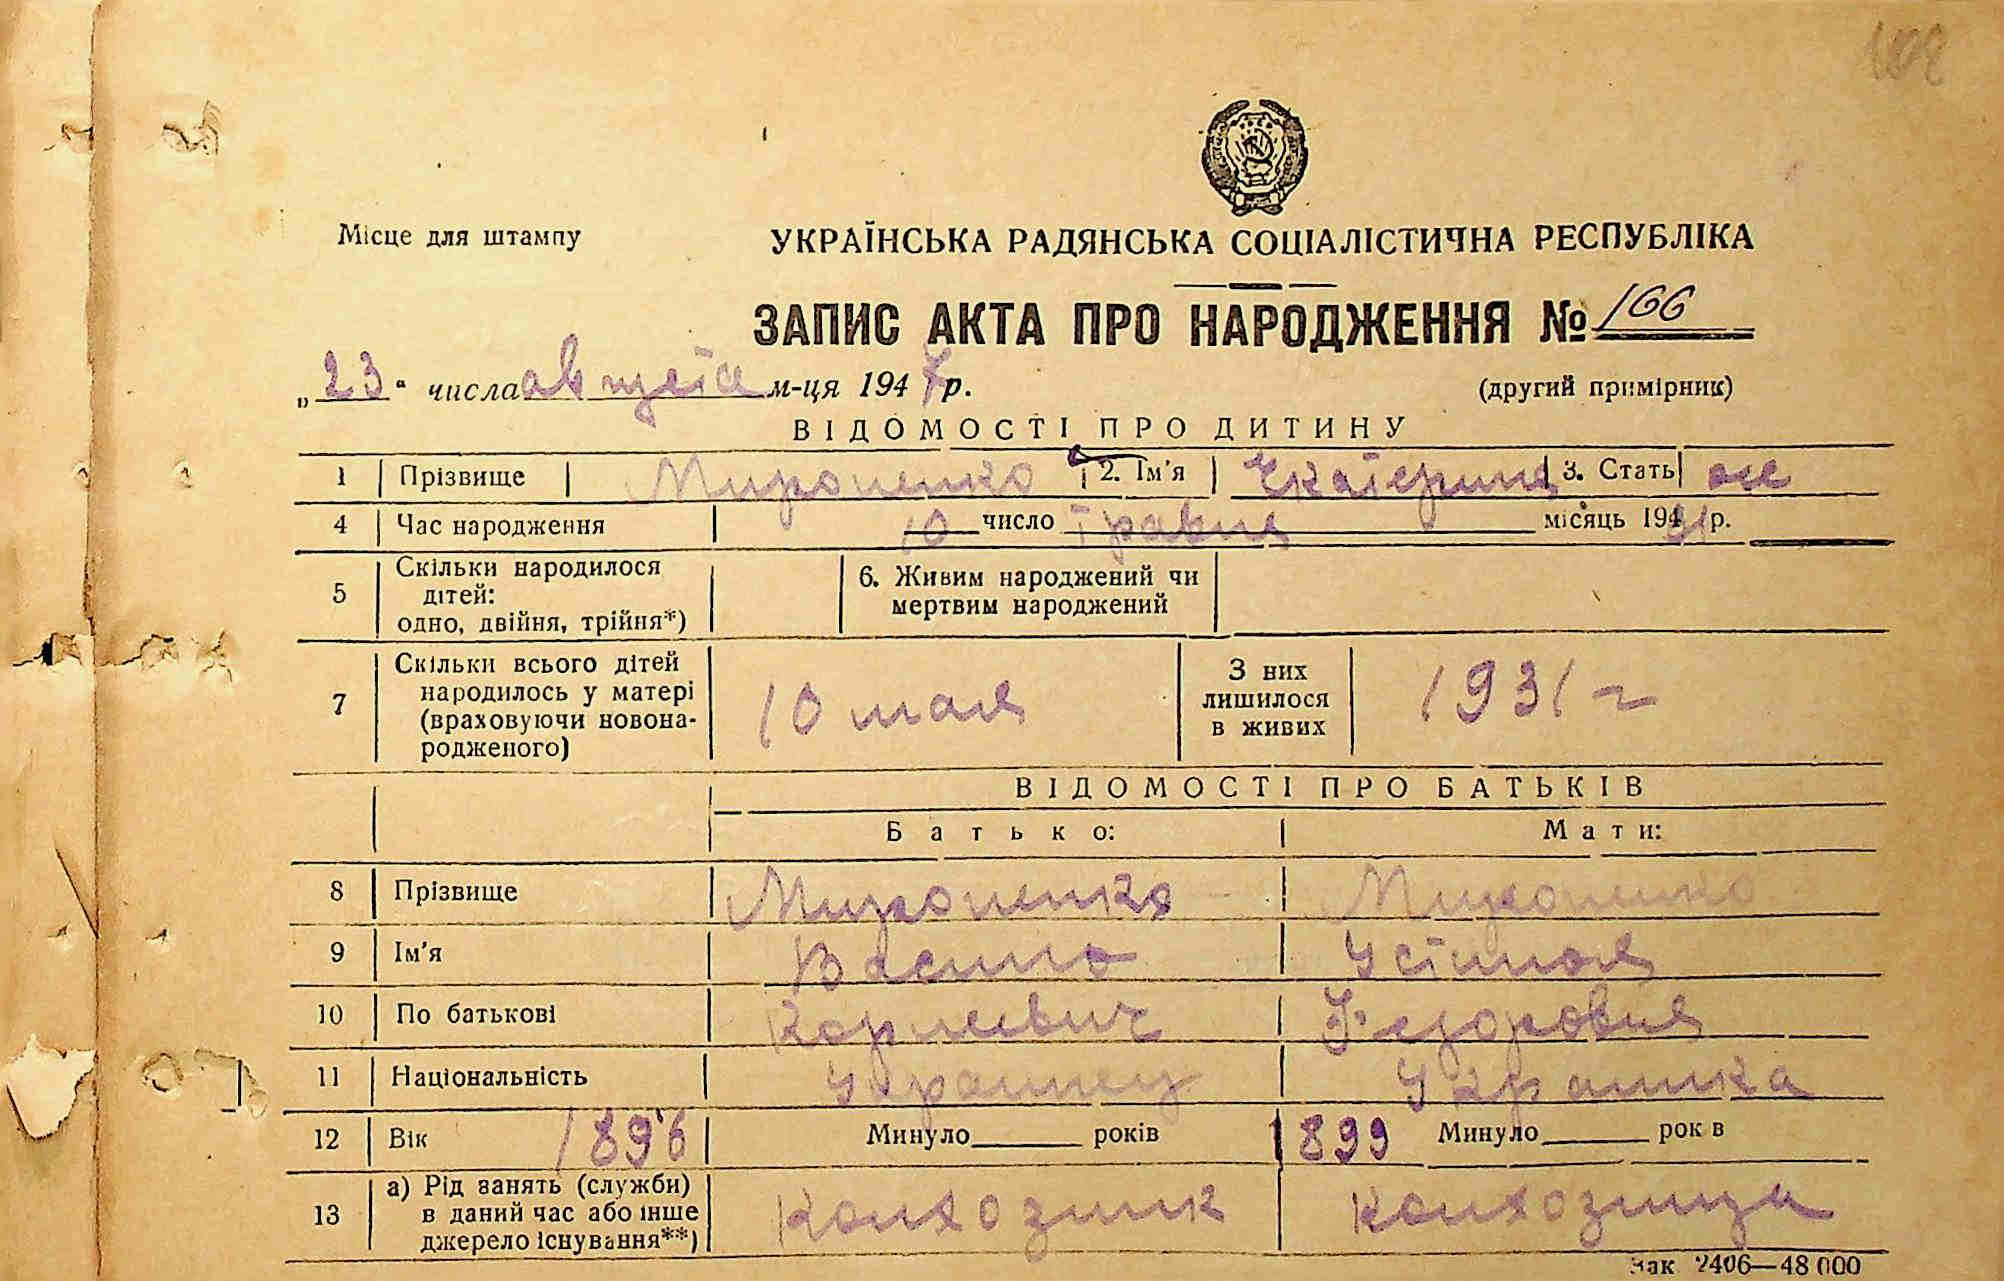 102
Місце для штампу
УКРАЇНСЬКА РАДЯНСЬКА СОЦІАЛІСТИЧНА РЕСПУБЛІКА
ЗАПИС АКТА ПРО НАРОДЖЕННЯ № 166
„ 23 “ числа августа м-ця 1947 р.
(другий примірник)
ВІДОМОСТІ ПРО ДИТИНУ
1 Прізвище Мироненко 2. Ім'я Екатерина 3. Стать ж
4 Час народження 10 число травня місяць 194 р.
5 Скільки народилося дітей: одно, двійня, трійня*) 6. Живим народжений чи мертвим народжений
7 Скільки всього дітей народилось у матері (враховуючи новонародженого) 10 мая З них лишилося в живих 1931 г
ВІДОМОСТІ ПРО БАТЬКІВ
Батько: Мати:
8 Прізвище Мироненко Мироненко
9 Ім'я Василь Устимья
10 По батькові Карпеевич Федоровна
11 Національність Украинец Украинка
12 Вік 1896 Минуло років 1899 Минуло рок в
13 а) Рід занять (служби) в даний час або інше джерело існування**) Колхозник Колхозница
Зак 2406—48 000